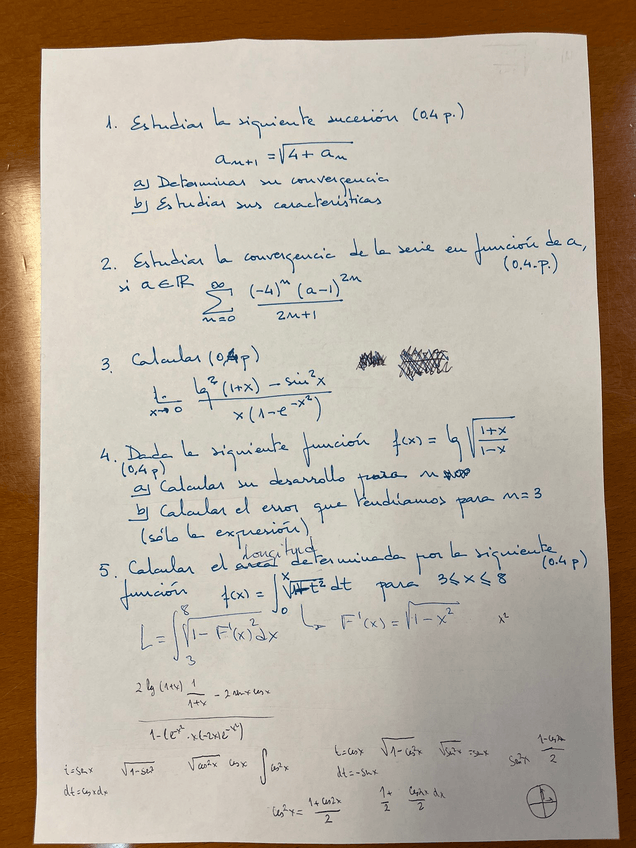 1. Estudiar la siguiente sucesión (0.4 p.)
a_{n+1} = √(4 + a_n)
a) Determinar su convergencia
b) Estudiar sus características
2. Estudiar la convergencia de la serie en función de a,
si a ∈ ℝ (0.4 p.)
∑_{n=0}^{∞} (-4)^n (a-1)^{2n} / (2n+1)
3. Calcular (0.4 p)
L_{x→0} (lg²(1+x) - sin²x) / (x(1-e^{-x²}))
4. Dada la siguiente función f(x) = lg √((1+x)/(1-x))
(0,4 p)
a) Calcular su desarrollo para n
b) Calcular el error que tendríamos para n=3
(sólo la expresión)
longitud
5. Calcular el area determinada por la siguiente
(0.4 p)
función f(x) = ∫_0^x t² dt para 3 ≤ x ≤ 8
L = ∫_3^8 √(1 - F'(x)²) dx ↳ F'(x) = √(1-x²) x²
(2 lg(1+x) 1/(1+x) - 2 sen x cos x) / (1-(e^{-x²} · x(-2x)e^{-x²})
t = sen x √(1-sen² √(cos²x) cos x ∫cos²x t = cos x √(1-cos²x) √(sen²x) = sen x sen²x (1-cos2x)/2
dt = cos x dx dt = -sen x
cos²x = (1+cos2x)/2 1/2 + cos2x/2 dx